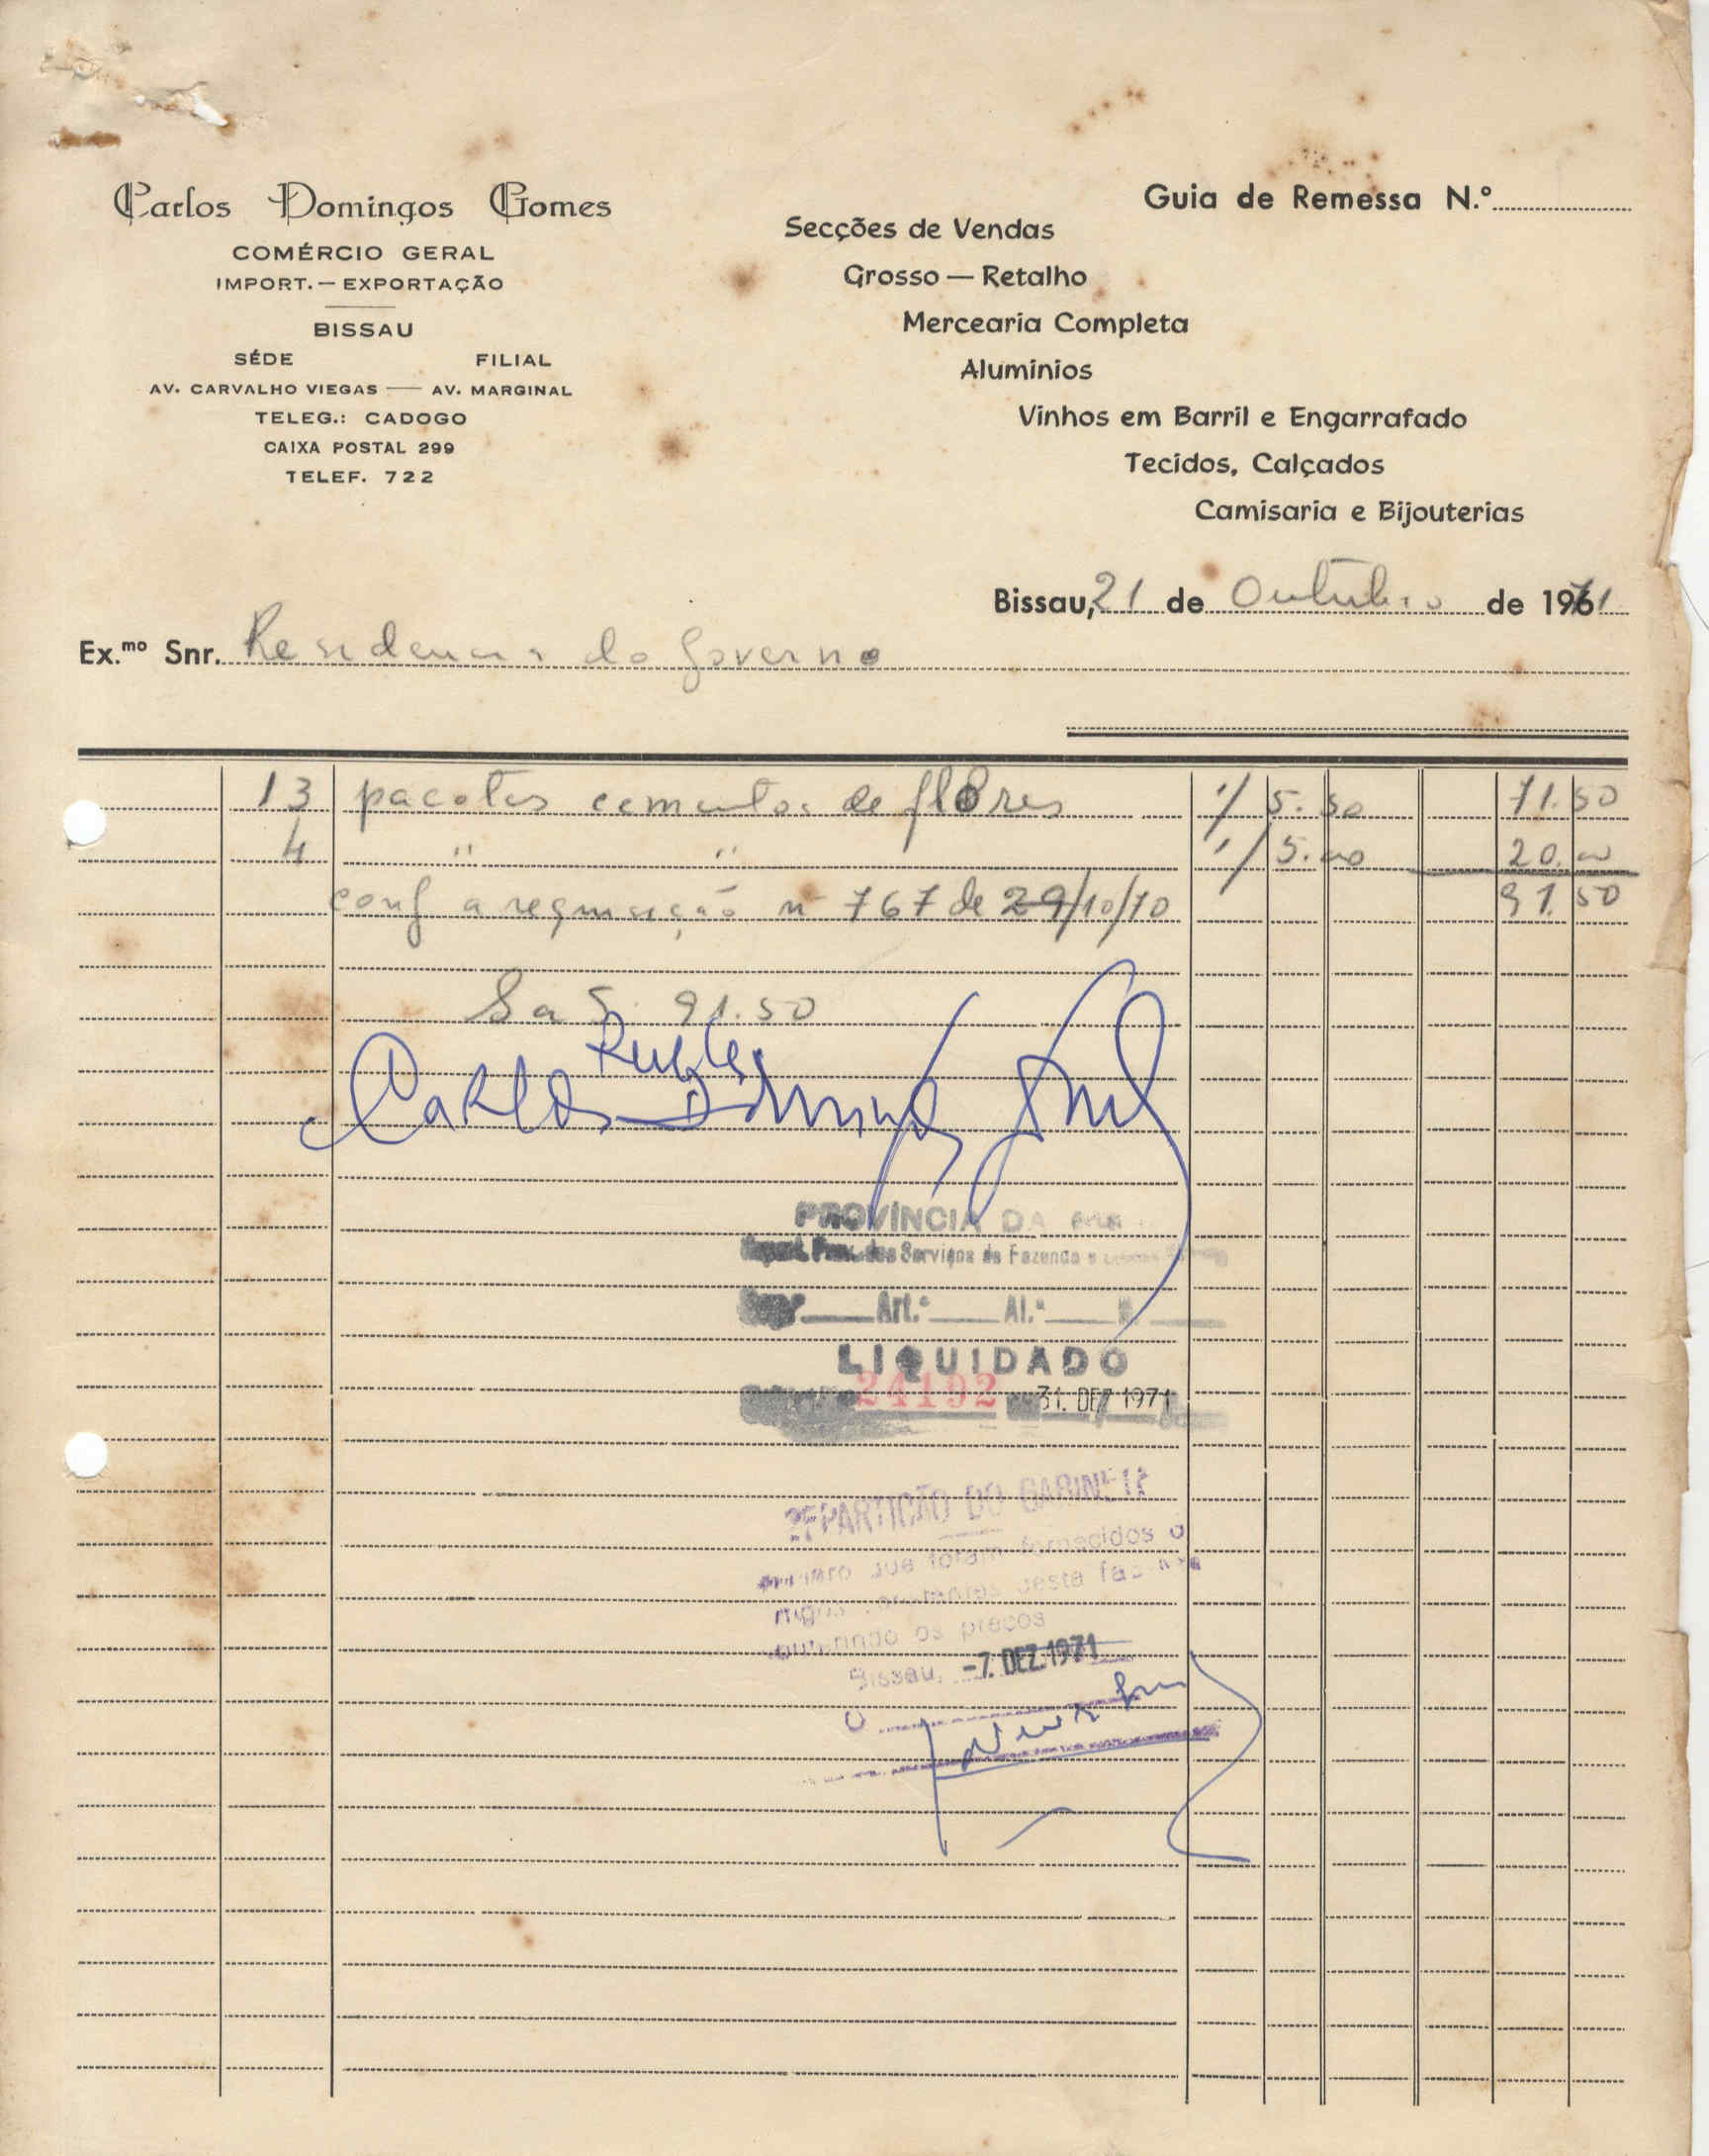 Carlos Domingos Gomes
COMÉRCIO GERAL
IMPORT. — EXPORTAÇÃO
BISSAU
SÉDE FILIAL
AV. CARVALHO VIEGAS — AV. MARGINAL
TELEG.: CADOGO
CAIXA POSTAL 299
TELEF. 722
Guia de Remessa N.º
Secções de Vendas
Grosso — Retalho
Mercearia Completa
Alumínios
Vinhos em Barril e Engarrafado
Tecidos, Calçados
Camisaria e Bijouterias
Bissau, 21 de Outubro de 1971
Ex.mo Snr. Residencia do Governo
13 pacotes de flores 1/ 5.50 71.50
4 " " 1/ 5.00 20.00
conf a requisição nº 767 de 29/10/70 91.50
São 91.50
Carlos Domingos Gomes
PROVÍNCIA DA
dos Serviços de Fazenda e
Art.º Al.ª
LIQUIDADO
24192 31. DEZ 1971
REPARTIÇÃO DO GABINETE
que foram fornecidos o
constantes desta
conferindo os preços
Bissau, -7. DEZ. 1971
O